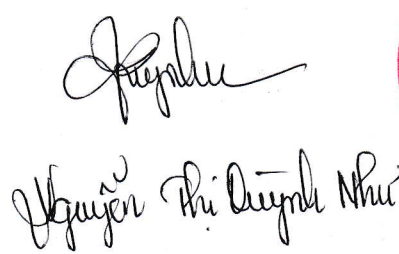 Nguyễn Thị Quỳnh Như